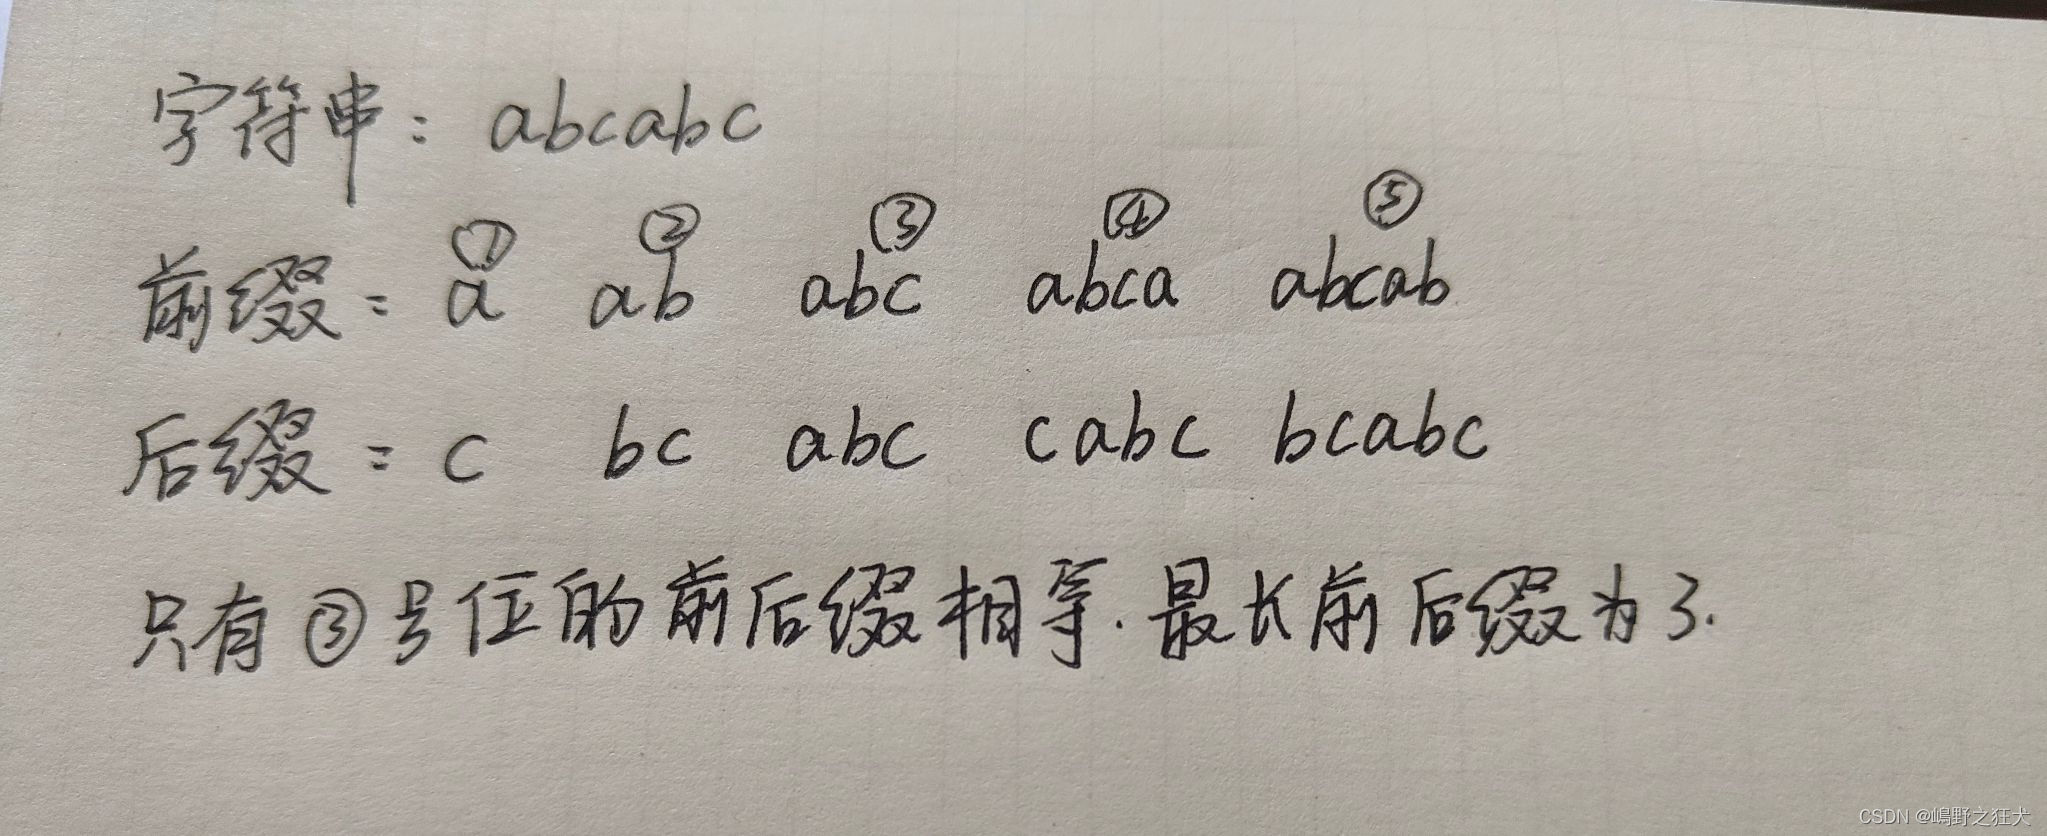 字符串: abcabc
① ② ③ ④ ⑤
前缀: a ab abc abca abcab
后缀: c bc abc cabc bcabc
只有③号位的前后缀相等.最长前后缀为3.
CSDN @嶋野之狂犬